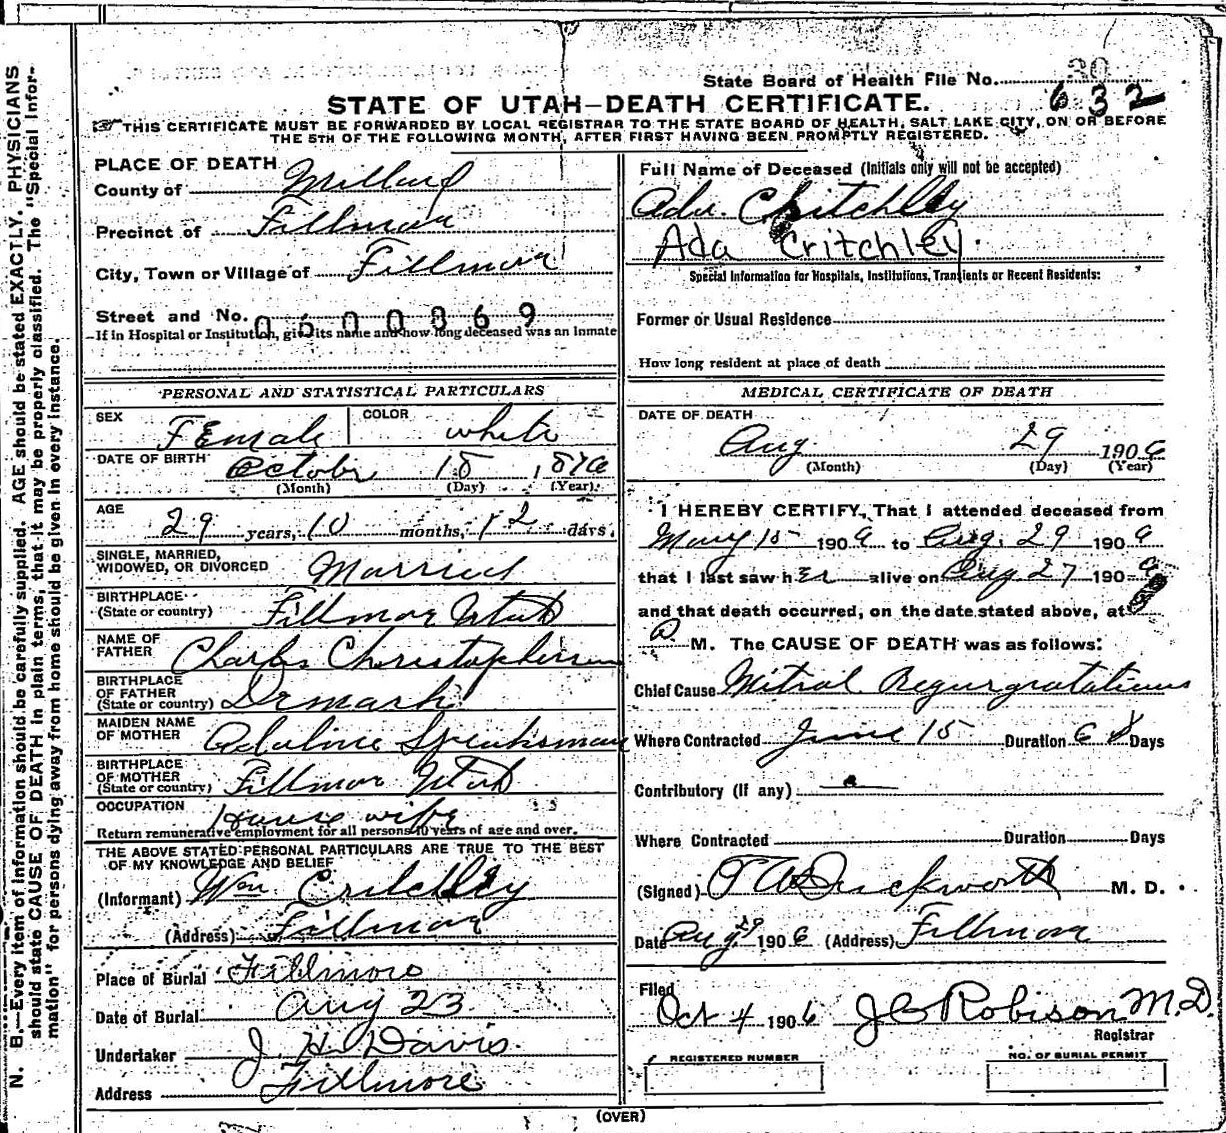 State Board of Health File No. 30
632
STATE OF UTAH—DEATH CERTIFICATE.
THIS CERTIFICATE MUST BE FORWARDED BY LOCAL REGISTRAR TO THE STATE BOARD OF HEALTH, SALT LAKE CITY, ON OR BEFORE
THE 5TH OF THE FOLLOWING MONTH, AFTER FIRST HAVING BEEN PROMPTLY REGISTERED.
N. B.—Every item of information should be carefully supplied. AGE should be stated EXACTLY. PHYSICIANS
should state CAUSE OF DEATH in plain terms, that it may be properly classified. The "Special Infor-
mation" for persons dying away from home should be given in every instance.
PLACE OF DEATH
County of Millard
Precinct of Fillmore
City, Town or Village of Fillmore
Street and No. 0600369
If in Hospital or Institution, give its name and how long deceased was an inmate
PERSONAL AND STATISTICAL PARTICULARS
SEX Female COLOR white
DATE OF BIRTH October 18, 1876
(Month) (Day) (Year)
AGE
29 years, 10 months, 12 days.
SINGLE, MARRIED,
WIDOWED, OR DIVORCED Married
BIRTHPLACE
(State or country) Fillmore Utah
NAME OF
FATHER Charles Christophersen
BIRTHPLACE
OF FATHER
(State or country) Denmark
MAIDEN NAME
OF MOTHER Adaline Speaksman
BIRTHPLACE
OF MOTHER
(State or country) Fillmore Utah
OCCUPATION House wife
Return remunerative employment for all persons 10 years of age and over.
THE ABOVE STATED PERSONAL PARTICULARS ARE TRUE TO THE BEST
OF MY KNOWLEDGE AND BELIEF
(Informant) Wm Critchley
(Address) Fillmore
Place of Burial Fillmore
Date of Burial Aug 23
Undertaker J. H. Davis.
Address Fillmore
Full Name of Deceased (Initials only will not be accepted)
Ada. Critchley
Ada Critchley.
Special Information for Hospitals, Institutions, Transients or Recent Residents:
Former or Usual Residence
How long resident at place of death
MEDICAL CERTIFICATE OF DEATH
DATE OF DEATH
Aug 29 1906
(Month) (Day) (Year)
I HEREBY CERTIFY, That I attended deceased from
May 15 1906 to Aug. 29 1906
that I last saw her alive on Aug 27 1906
and that death occurred, on the date stated above, at
a M. The CAUSE OF DEATH was as follows:
Chief Cause Mitral Regurgratations
Where Contracted June 15 Duration 68 Days
Contributory (If any)
Where Contracted Duration Days
(Signed) T A Duckworth M. D.
Date Aug 29 1906 (Address) Fillmore
Filed
Oct 4 1906 J C Robison M.D.
Registrar
REGISTERED NUMBER
NO. OF BURIAL PERMIT
(OVER)